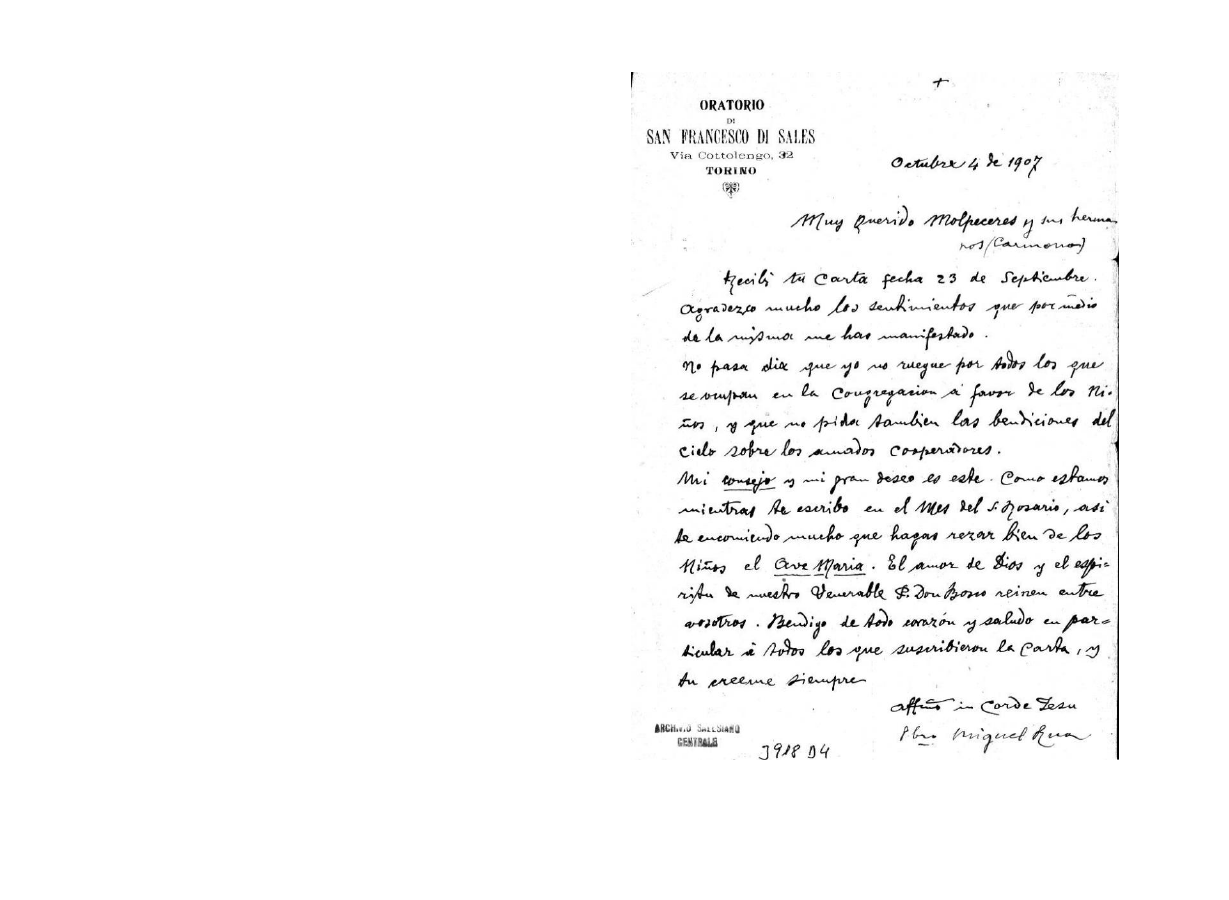 +
ORATORIO
DI
SAN FRANCESCO DI SALES
Via Cottolengo, 32
TORINO
Octubre 4 de 1907
Muy Querido Molpeceres y sus herma
nos (Carmona)
Recibi tu Carta fecha 23 de Septiembre.
Agradezco mucho los sentimientos que por medio
de la misma me has manifestado.
No pasa dia que yo no ruegue por todos los que
se ocupan en la Congregacion á favor de los Ni-
ños, y que no pida tambien las bendiciones del
cielo sobre los amados Cooperadores.
Mi consejo y mi gran deseo es este. Como estamos
mientras te escribo en el Mes del S. Rosario, asi
te encomiendo mucho que hagas rezar bien de los
Niños el Ave Maria. El amor de Dios y el espi=
ritu de nuestro Venerable P. Don Bosco reinen entre
vosotros. Bendigo de todo corazón y saludo en par=
ticular á todos los que suscribieron la Carta, y
tu creeme siempre
affmo in Corde Jesu
Pbro Miguel Rua
ARCHIVIO SALESIANO
CENTRALE
3918 D4